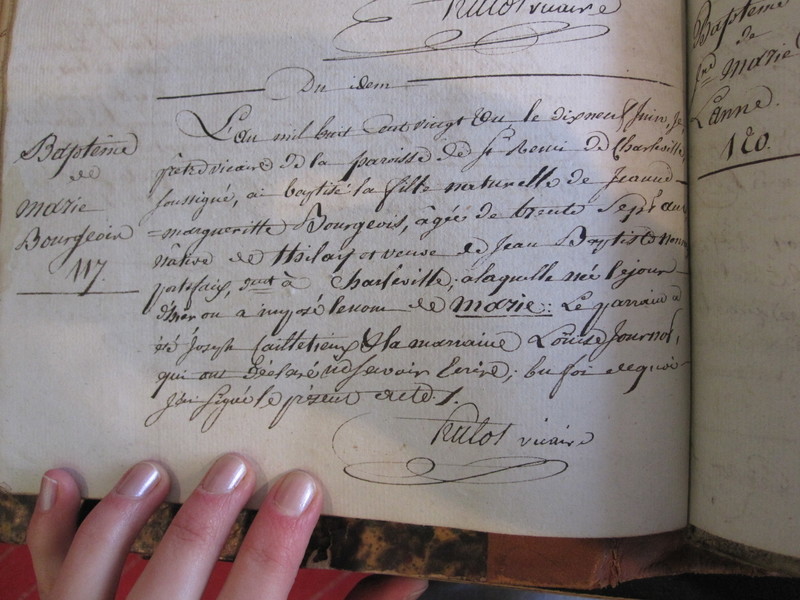 vicaire
Du idem
Baptême
de
marie
Bourgeois
117.
L'an mil huit Cent vingt Un le dixneuf Juin, Je
prêtre vicaire de la paroisse de St Remi de Charleville,
soussigné, ai baptisé la fille naturelle de Jeanne
=margueritte Bourgeois, âgée de trente Sept ans
nâtive de Thilay et veuve de Jean Baptiste
à Charleville, à laquelle née le jour
d'hier on a imposé le nom de marie: Le parrain a
été Joseph & la marraine Louise Journot,
qui ont déclaré ne savoir Ecrire; En foi de quoi
J'ai signé le présent acte./.
vicaire
Baptême
de
marie
Lanne.
120.